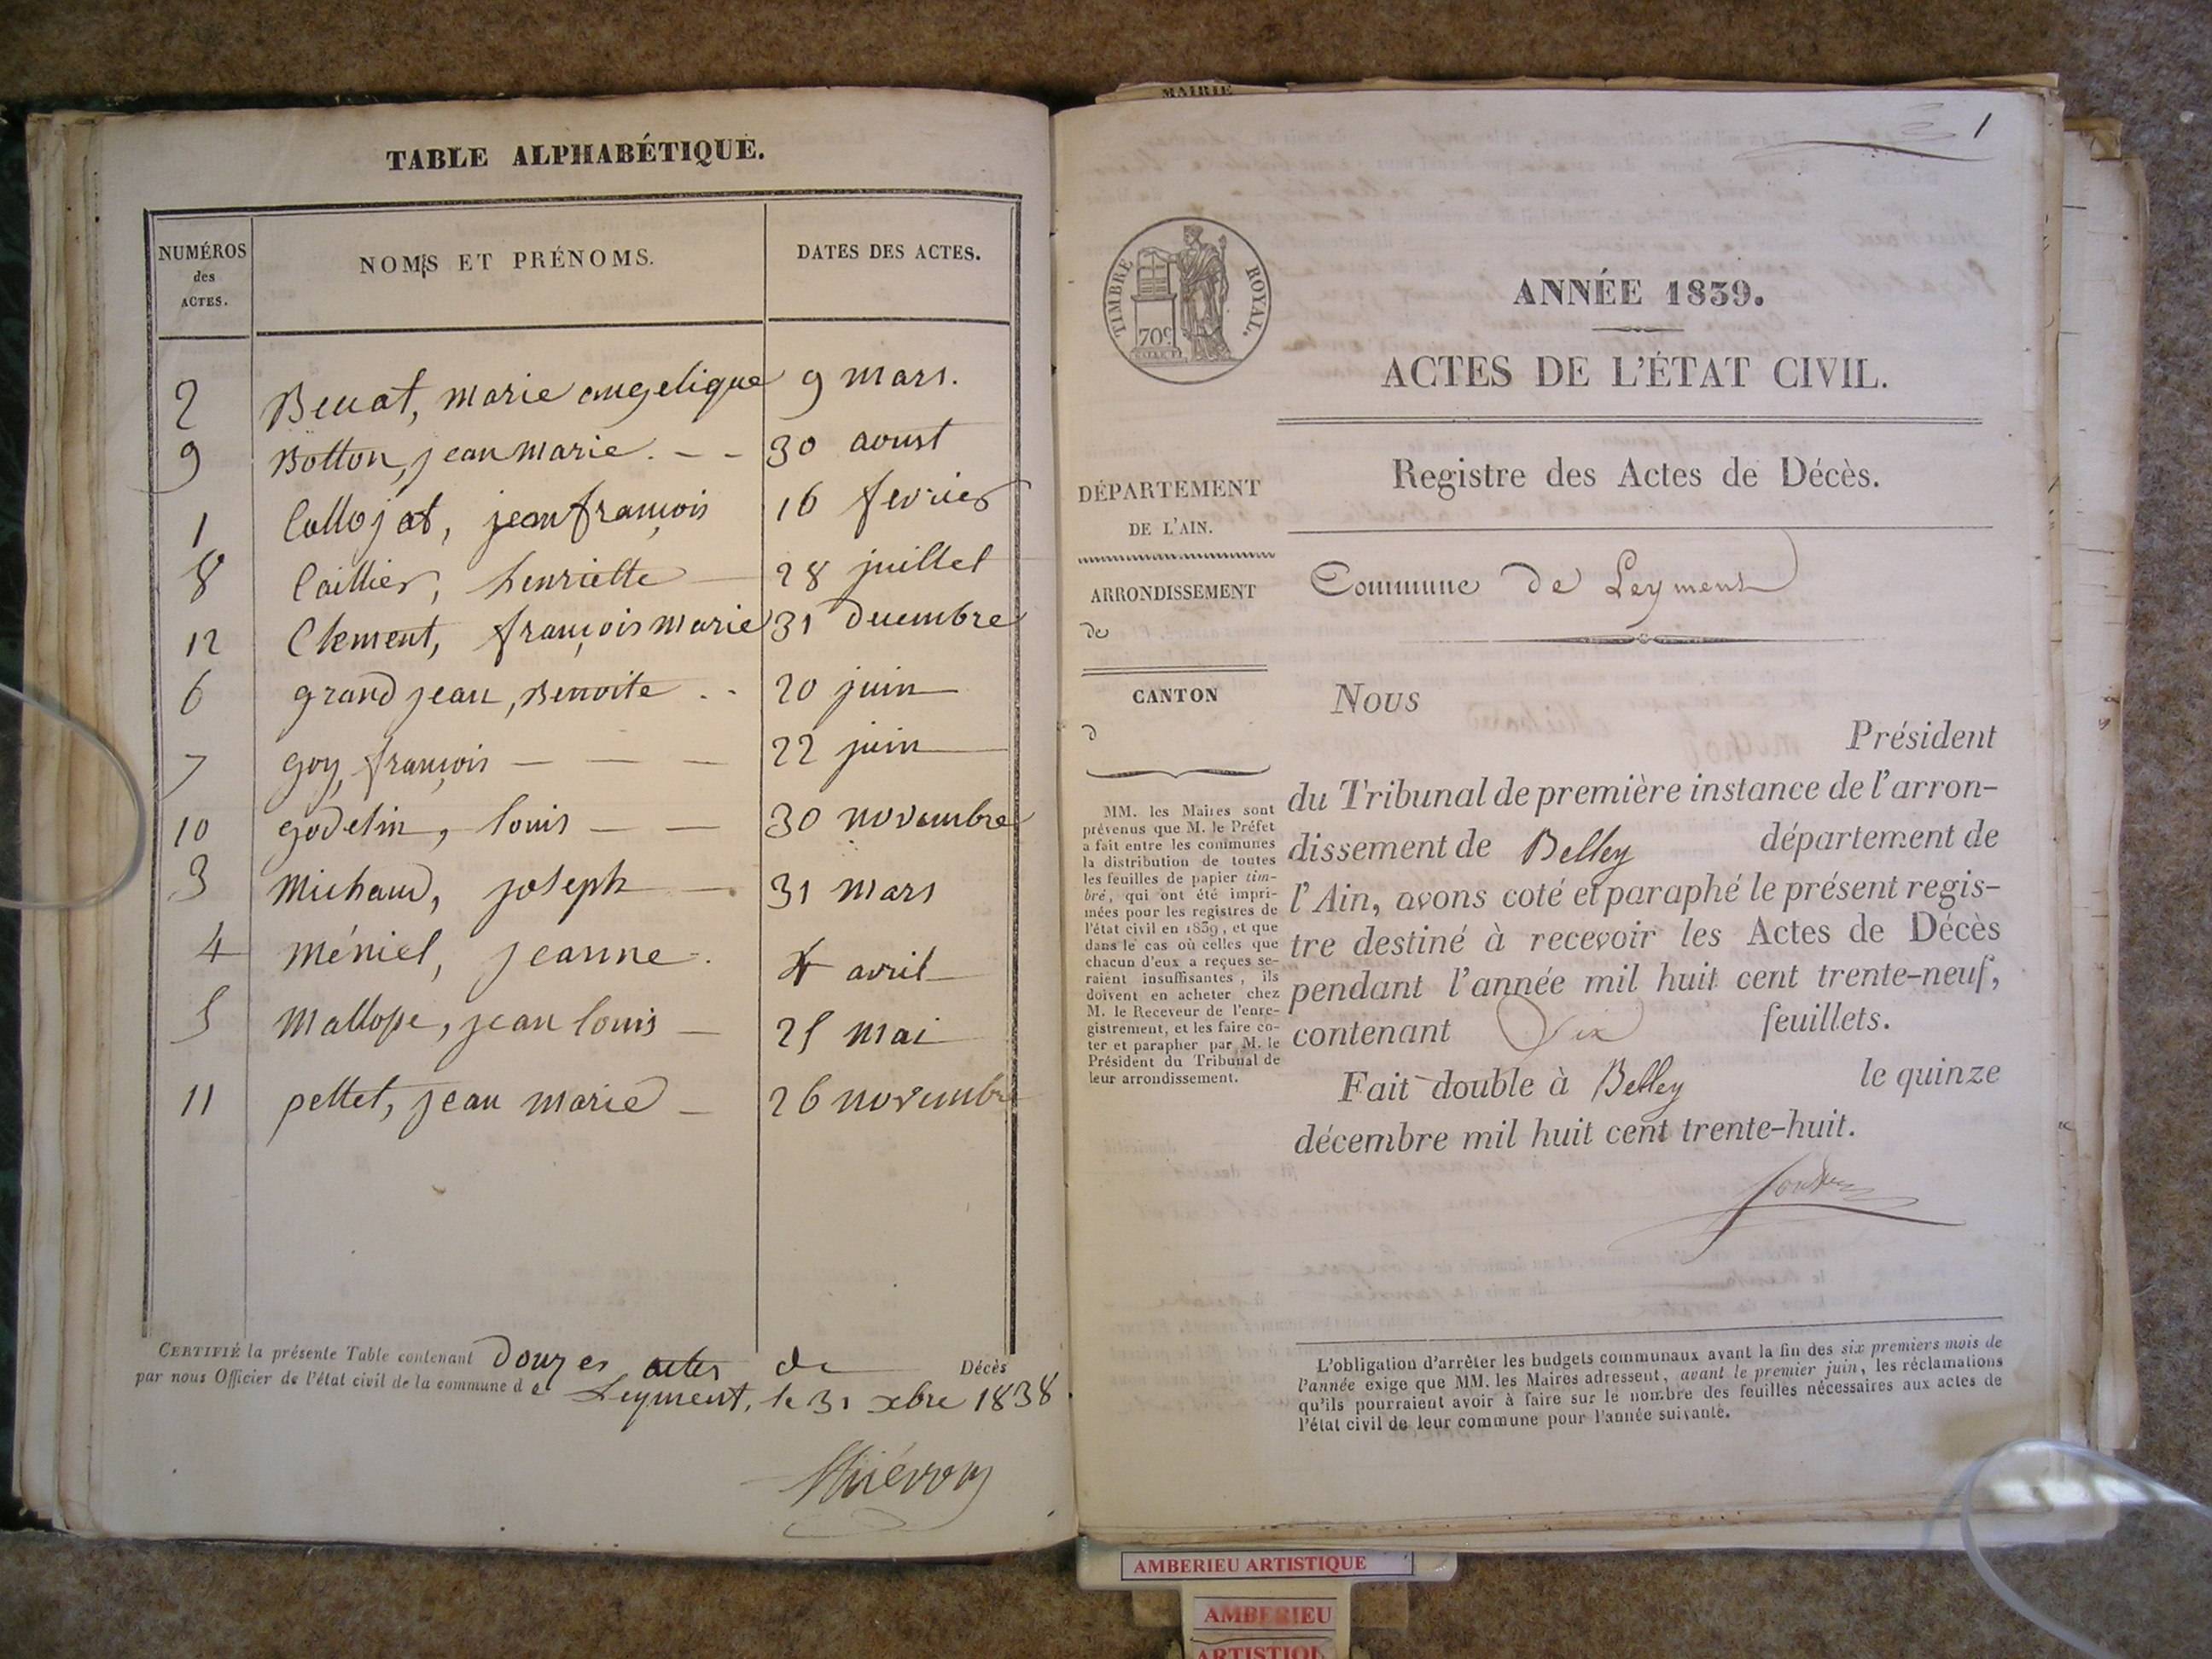 TABLE ALPHABÉTIQUE.
NUMÉROS des ACTES.
NOMS ET PRÉNOMS.
DATES DES ACTES.
2 Beuat, marie angelique 9 mars.
9 Botton, jean marie. - - 30 aoust
1 Collojat, jean françois 16 fevrier
8 Caillier, henriette 28 juillet
12 Clement, françois marie 31 decembre
6 grand jean, Benoite .. 20 juin
7 goy, françois - - - 22 juin
10 godelin, louis - - 30 novembre
3 Michaud, joseph - 31 mars
4 Méniel, jeanne -. 4 avril
5 Mallope, jean louis - 25 mai
11 pettet, jean marie - 26 novembre
CERTIFIÉ la présente Table contenant Douzes actes de Décès
par nous Officier de l'état civil de la commune de Leyment, le 31 xbre 1838.
MAIRIE
1
TIMBRE ROYAL.
70c
ANNÉE 1839.
ACTES DE L'ÉTAT CIVIL.
Registre des Actes de Décès.
Commune de Leyment
DÉPARTEMENT
DE L'AIN.
ARRONDISSEMENT
de
CANTON
d
MM. les Maires sont
prévenus que M. le Préfet
a fait entre les communes
la distribution de toutes
les feuilles de papier tim-
bré, qui ont été impri-
mées pour les registres de
l'état civil en 1839, et que
dans le cas où celles que
chacun d'eux a reçues se-
raient insuffisantes, ils
doivent en acheter chez
M. le Receveur de l'enre-
gistrement, et les faire co-
ter et parapher par M. le
Président du Tribunal de
leur arrondissement.
Nous
Président
du Tribunal de première instance de l'arron-
dissement de Belley département de
l'Ain, avons coté et paraphé le présent regis-
tre destiné à recevoir les Actes de Décès
pendant l'année mil huit cent trente-neuf,
contenant Six feuillets.
Fait double à Belley le quinze
décembre mil huit cent trente-huit.
L'obligation d'arrêter les budgets communaux avant la fin des six premiers mois de
l'année exige que MM. les Maires adressent, avant le premier juin, les réclamations
qu'ils pourraient avoir à faire sur le nombre des feuilles nécessaires aux actes de
l'état civil de leur commune pour l'année suivante.
AMBERIEU ARTISTIQUE
AMBERIEU
ARTISTIQ